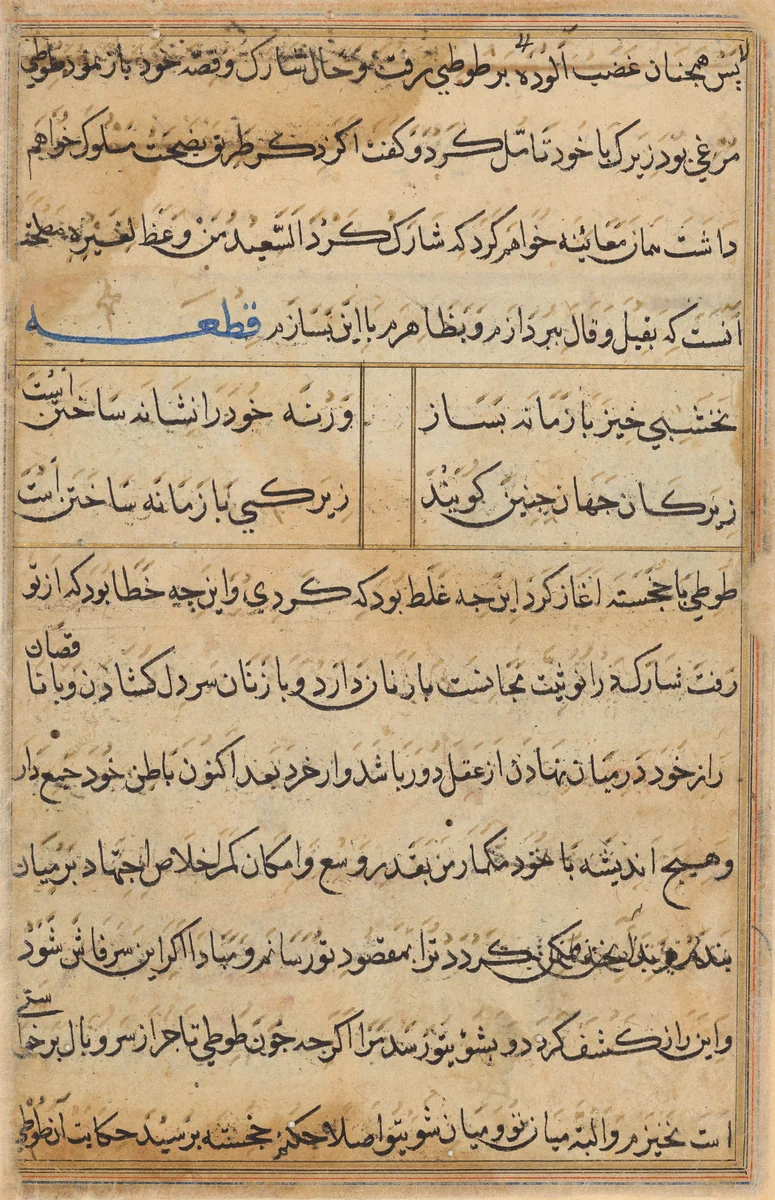 پس همچنان غضب آلوده بر طوطی رفت و حال شارک و قصه خود باز نمود طوطی
مرغی بود زیرک با خود تامل کرد و کفت اکر ذکر طریق نصیحت مسلوک خواهم
داشت همان معاینه خواهم کرد که شارک کرد السعید من وعظ لغیره مصلحت
آنست که بقیل و قال بپردازم و بظاهر با این بسازم قطعه
نخشبی خیز با زمانه بساز
ورنه خود را نشانه ساختن است
زیرکان جهان چنین کویند
زیرکی با زمانه ساختن است
طوطی با خجسته اغاز کرد این چه غلط بود که کردی و این چه خطا بود که از تو
رفت شارک زنان دارد و با زنان سر دل کشادن و با ناقصان
راز خود در میان نهادن از عقل دور باشد و از خرد بعد اکنون باطن خود جمع دار
و هیچ اندیشه با خود مکمار من بقدر وسع و امکان کمر اخلاص اجتهاد بر میان
بندم کردد ترا بمقصود تو رسانم و مبادا اکر این سر فاش شود
و این راز کشف کردد و بشوی تو رسد مرا اکر چه چون طوطی تاجر از سر و بال بر خواستی
است نخیزم و البته میان تو و میان شوی تو اصلاح کنم خجسته پرسید حکایت آن طوطی